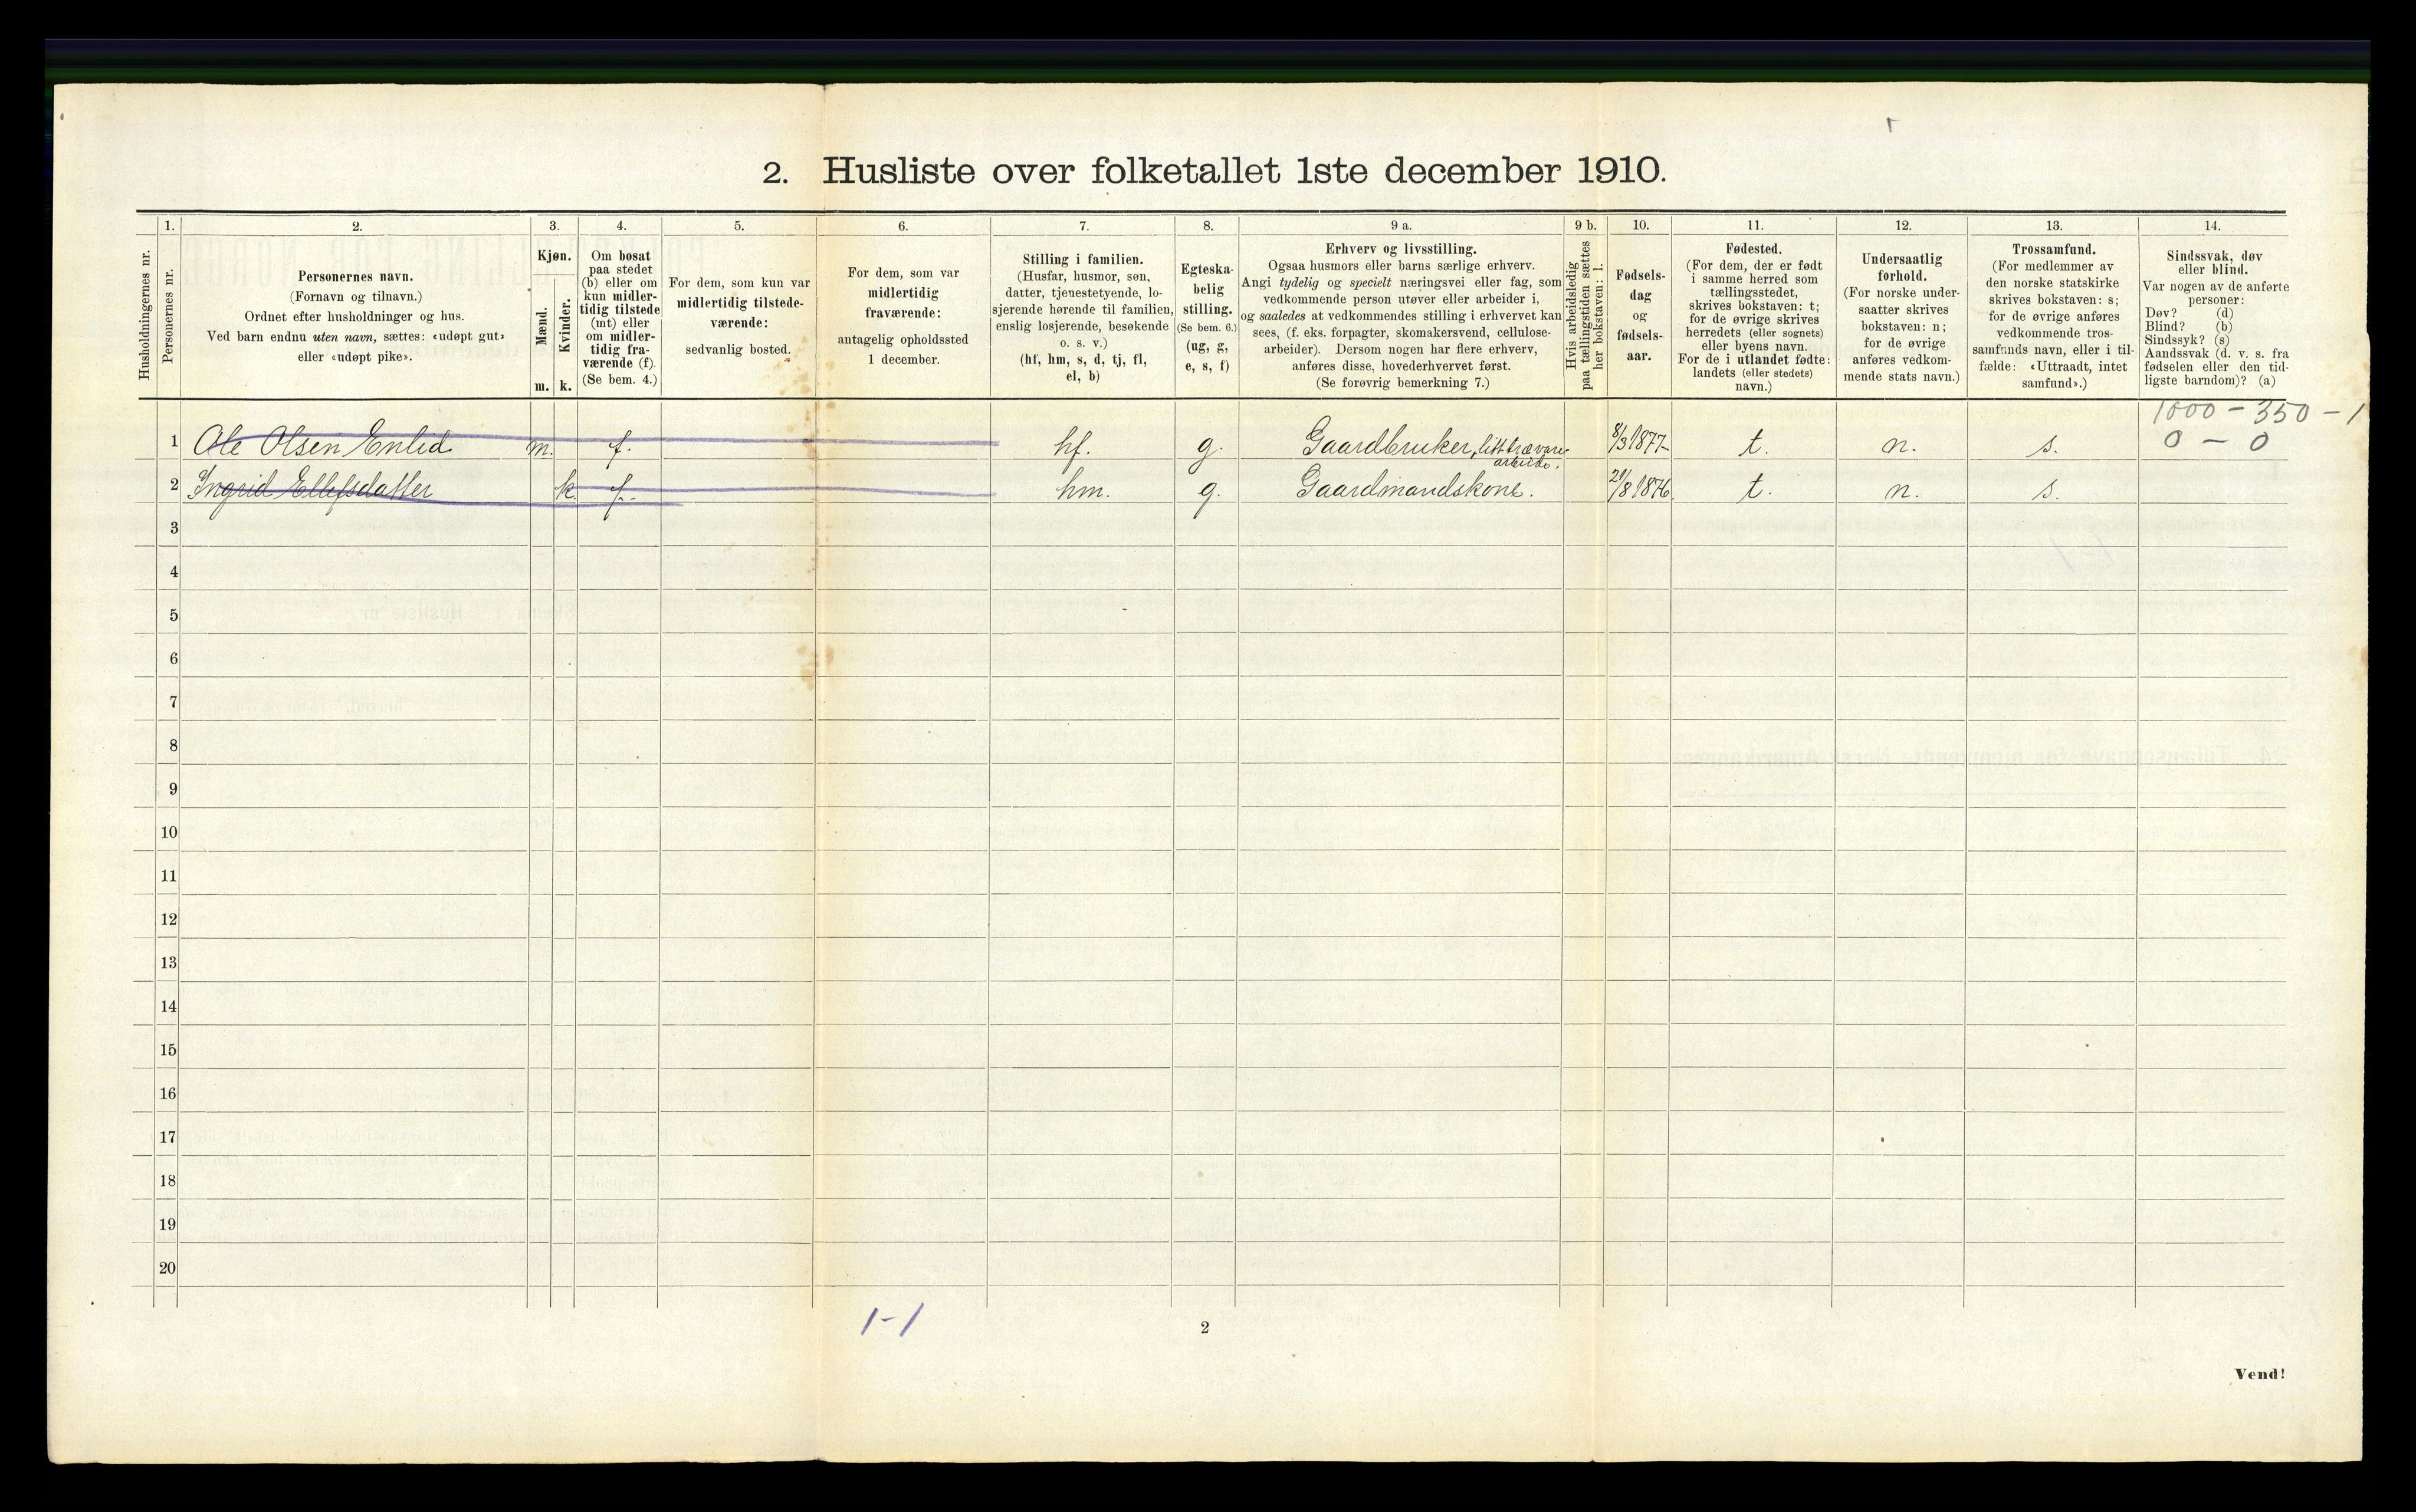 2. Husliste over folketallet 1ste december 1910.
Husholdningernes nr.
1.
Personernes nr.
2.
Personernes navn.
(Fornavn og tilnavn.)
Ordnet efter husholdninger og hus.
Ved barn endnu uten navn, sættes: «udøpt gut»
eller «udøpt pike».
3.
Kjøn.
Mænd.
Kvinder.
m. k.
4.
Om bosat
paa stedet
(b) eller om
kun midler-
tidig tilstede
(mt) eller
om midler-
tidig fra-
værende (f).
(Se bem. 4.)
5.
For dem, som kun var
midlertidig tilstede-
værende:
sedvanlig bosted.
6.
For dem, som var
midlertidig
fraværende:
antagelig opholdssted
1 december.
7.
Stilling i familien.
(Husfar, husmor, søn,
datter, tjenestetyende, lo-
sjerende hørende til familien,
enslig losjerende, besøkende
o. s. v.)
(hf, hm, s, d, tj, fl,
el, b)
8.
Egteska-
belig
stilling.
(Se bem. 6.)
(ug, g,
e, s, f)
9 a.
Erhverv og livsstilling.
Ogsaa husmors eller barns særlige erhverv.
Angi tydelig og specielt næringsvei eller fag, som
vedkommende person utøver eller arbeider i,
og saaledes at vedkommendes stilling i erhvervet kan
sees, (f. eks. forpagter, skomakersvend, cellulose-
arbeider). Dersom nogen har flere erhverv,
anføres disse, hovederhvervet først.
(Se forøvrig bemerkning 7.)
9 b.
Hvis arbeidsledig
paa tællingstiden sættes
her bokstaven: l.
10.
Fødsels-
dag
og
fødsels-
aar.
11.
Fødested.
(For dem, der er født
i samme herred som
tællingsstedet,
skrives bokstaven: t;
for de øvrige skrives
herredets (eller sognets)
eller byens navn.
For de i utlandet fødte:
landets (eller stedets)
navn.)
12.
Undersaatlig
forhold.
(For norske under-
saatter skrives
bokstaven: n;
for de øvrige
anføres vedkom-
mende stats navn.)
13.
Trossamfund.
(For medlemmer av
den norske statskirke
skrives bokstaven: s;
for de øvrige anføres
vedkommende tros-
samfunds navn, eller i til-
fælde: «Uttraadt, intet
samfund».)
14.
Sindssvak, døv
eller blind.
Var nogen av de anførte
personer:
Døv? (d)
Blind? (b)
Sindssyk? (s)
Aandssvak (d. v. s. fra
fødselen eller den tid-
ligste barndom)? (a)
1000 - 350 - 1
1 Ole Olsen Enlid m. f. hf. g. Gaardbruker, litt trævare- 8/3 1877 t. n. s. 0 - 0
arbeide.
2 Ingrid Ellefsdatter k f. hm. g. Gaardmandskone. 21/8 1876 t. n. s.
3
4
5
6
7
8
9
10
11
12
13
14
15
16
17
18
19
20
1-1
2
Vend!